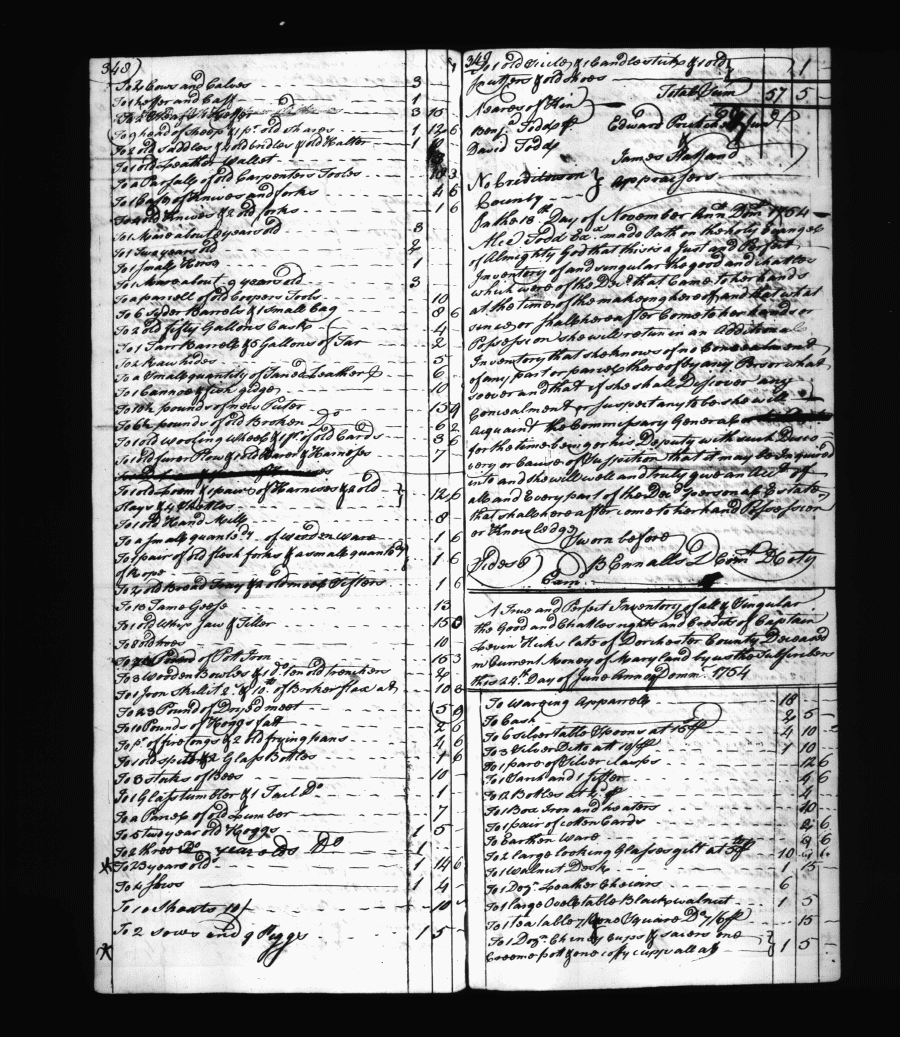 348)
To 2 Cows and Calves 3
To 1 heffer and Calf 1
3 15
To 9 head of Sheep & 1 pr. old Shares 1 12 6
To 2 old Saddles & old bridles & old Halter 1
To 1 old Leather Wallet
To a Parsall of old Carpenters Tooles 18 3
To 1 Case of Knives and forks 4 6
To 4 old Knives & 2 old forks 1 6
To 1 Mare about years old 3
To 1 Two years old 2
To 1 Small Horse 1
To 1 Mare about 9 years old 3
To a parcell of old Coopers Tools 10
To 6 Syder Barrels & 1 Small Cag 8 6
To 2 old fifty Gallons Casks 4
To 1 Tarr Barrell & 5 Gallons of Tar 2
To 2 Raw hides 5
To a Small quantity of Taned Leather 6
To 1 Cannoe & fish gidge 10
To pounds of new Puter 15 4
To 6½ pounds of old Broken Do 6 2
To 1 old Wooling Wheel & 1 pr. of old Cards 3 6
To 1 old furer Plow & 1 old Hower & Harneses 7
To 1 old Loom & 1 pair of Harneses & 2 old
Slays & 4 Shettles } 12 6
To 1 old Hand Mill 8
To a Small quantety of Wooden Ware 1 6
To 1 pair of old flesh forks & a small quantety
of Rope } 1 6
To 2 old Broad Tray & 2 old meal Sifters 1 6
To 13 Tame Geese 13
To 1 old Whip Saw & Tiller 15 0
To 8 old hoes 10
Pound of Pott Iron 15 3
To 3 Wooden Bowles & 1 Do. ten old trenchers 4
To 1 Iron Skillit 2/. & 10 lb. of Broken flax at 10 3
To 23 Pound of Dryed meet 5 9
To 10 Pounds of Hongs fatt 2 6
To 1 pr. of fire tongs & 2 old frying pans 4 6
To 1 old spitt & 2 Glass Bottles 1 6
To 3 stuks of Bees 10
To 1 Glass tumbler & 1 Tail Do 1
To a Parcep of old Lumber 7
To 5 two year old Hoggs 1 5
To 2 three Do year olds Do 1
To 2 3 years old 1 14 6
To 4 Sows 1 4
To 10 Shoats 10/ 10
To 2 sows and 9 Piggs 1 5
348
To 1 old Sickle & 1 Candlestick & 1 old
} 1
Total Sum 57 5
Neares of Kin
Benja. Todd
David Todd
Edward Pritchett Junr
James Halland
appraisers
No Creditors in
County }
Path 18th. Day of November Ann Dom. 1754
Alce Todd Exx. made Oath on the holy Evangels
of Almighty God that this is a Just and Perfect
Inventory of and singular the good and Chattles
which were of the Decd. that Came to her hands
at the time of the making hereof and that what
since or shall hereafter Come to her hands or
Possession she will return in an Additional
Inventory that she knows of no Concealment
of any part or parcep thereof by any Person what
soever and that if she shall Discover any
Concealment or suspect any to be she will
acquaint the Commissary General or
for the time being or his Deputy with such Disco
very or Cause of Suspition that it may be Inquired
into and she will well and truly give an acct of
all and Every part of the Decd. personal Estate
that shall hereafter come to her hand Possession
or Knowledge
Sworn before
B Ennalls D Com Dor Coty
Exam
A True and Perfect Inventory of all & Singular
the Good and Chattles rights and Credits of Captain
Levin Hicks late of Dorchester County Deceased
in Current Money of Maryland by us the Subscribers
this 24th. Day of June Annoq Domni. 1754
To Warging Apparrell 18
To Cash 2 5
To 6 Silver table Spoons at 15/ 4 10
To 3 Silver Ditto att 10/ 1 10
To 1 pare of Silver Clasps 12 6
4 6
To 12 Bottles at 4
To 1 Box Iron and heaters 10
To 1 pair of Cotten Cards 2 6
To Earthen Ware 9 6
To 2 large looking Glasses gilt at 10
To 1 Walnut Desk 1 15
To 1 Dozn. Leather Cheirs 6
To 1 large Ovel table Black walnut 1 5
To 1 tea table 7/6 one Square Do. 7/6 15
To 1 Dozn. Cheney Cups & Sacers one
Creome pott & one coffy cupp all at } 1 5